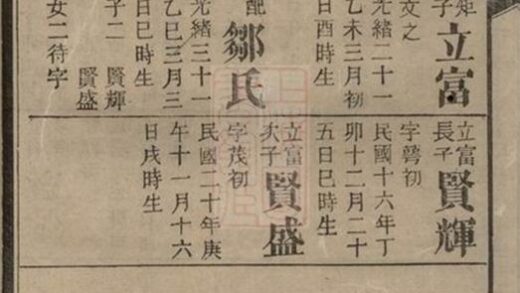 矩
子
立富
文之
光緒二十一
乙未三月初
日酉時生
配
鄒氏
光緒三十一
乙巳三月三
日巳時生
子二 賢輝
賢盛
女二待字
立富
長子
賢輝
字 初
民國十六年丁
卯十二月二十
五日巳時生
立富
次子
賢盛
字茂初
民國二十年庚
午十一月十六
日戌時生